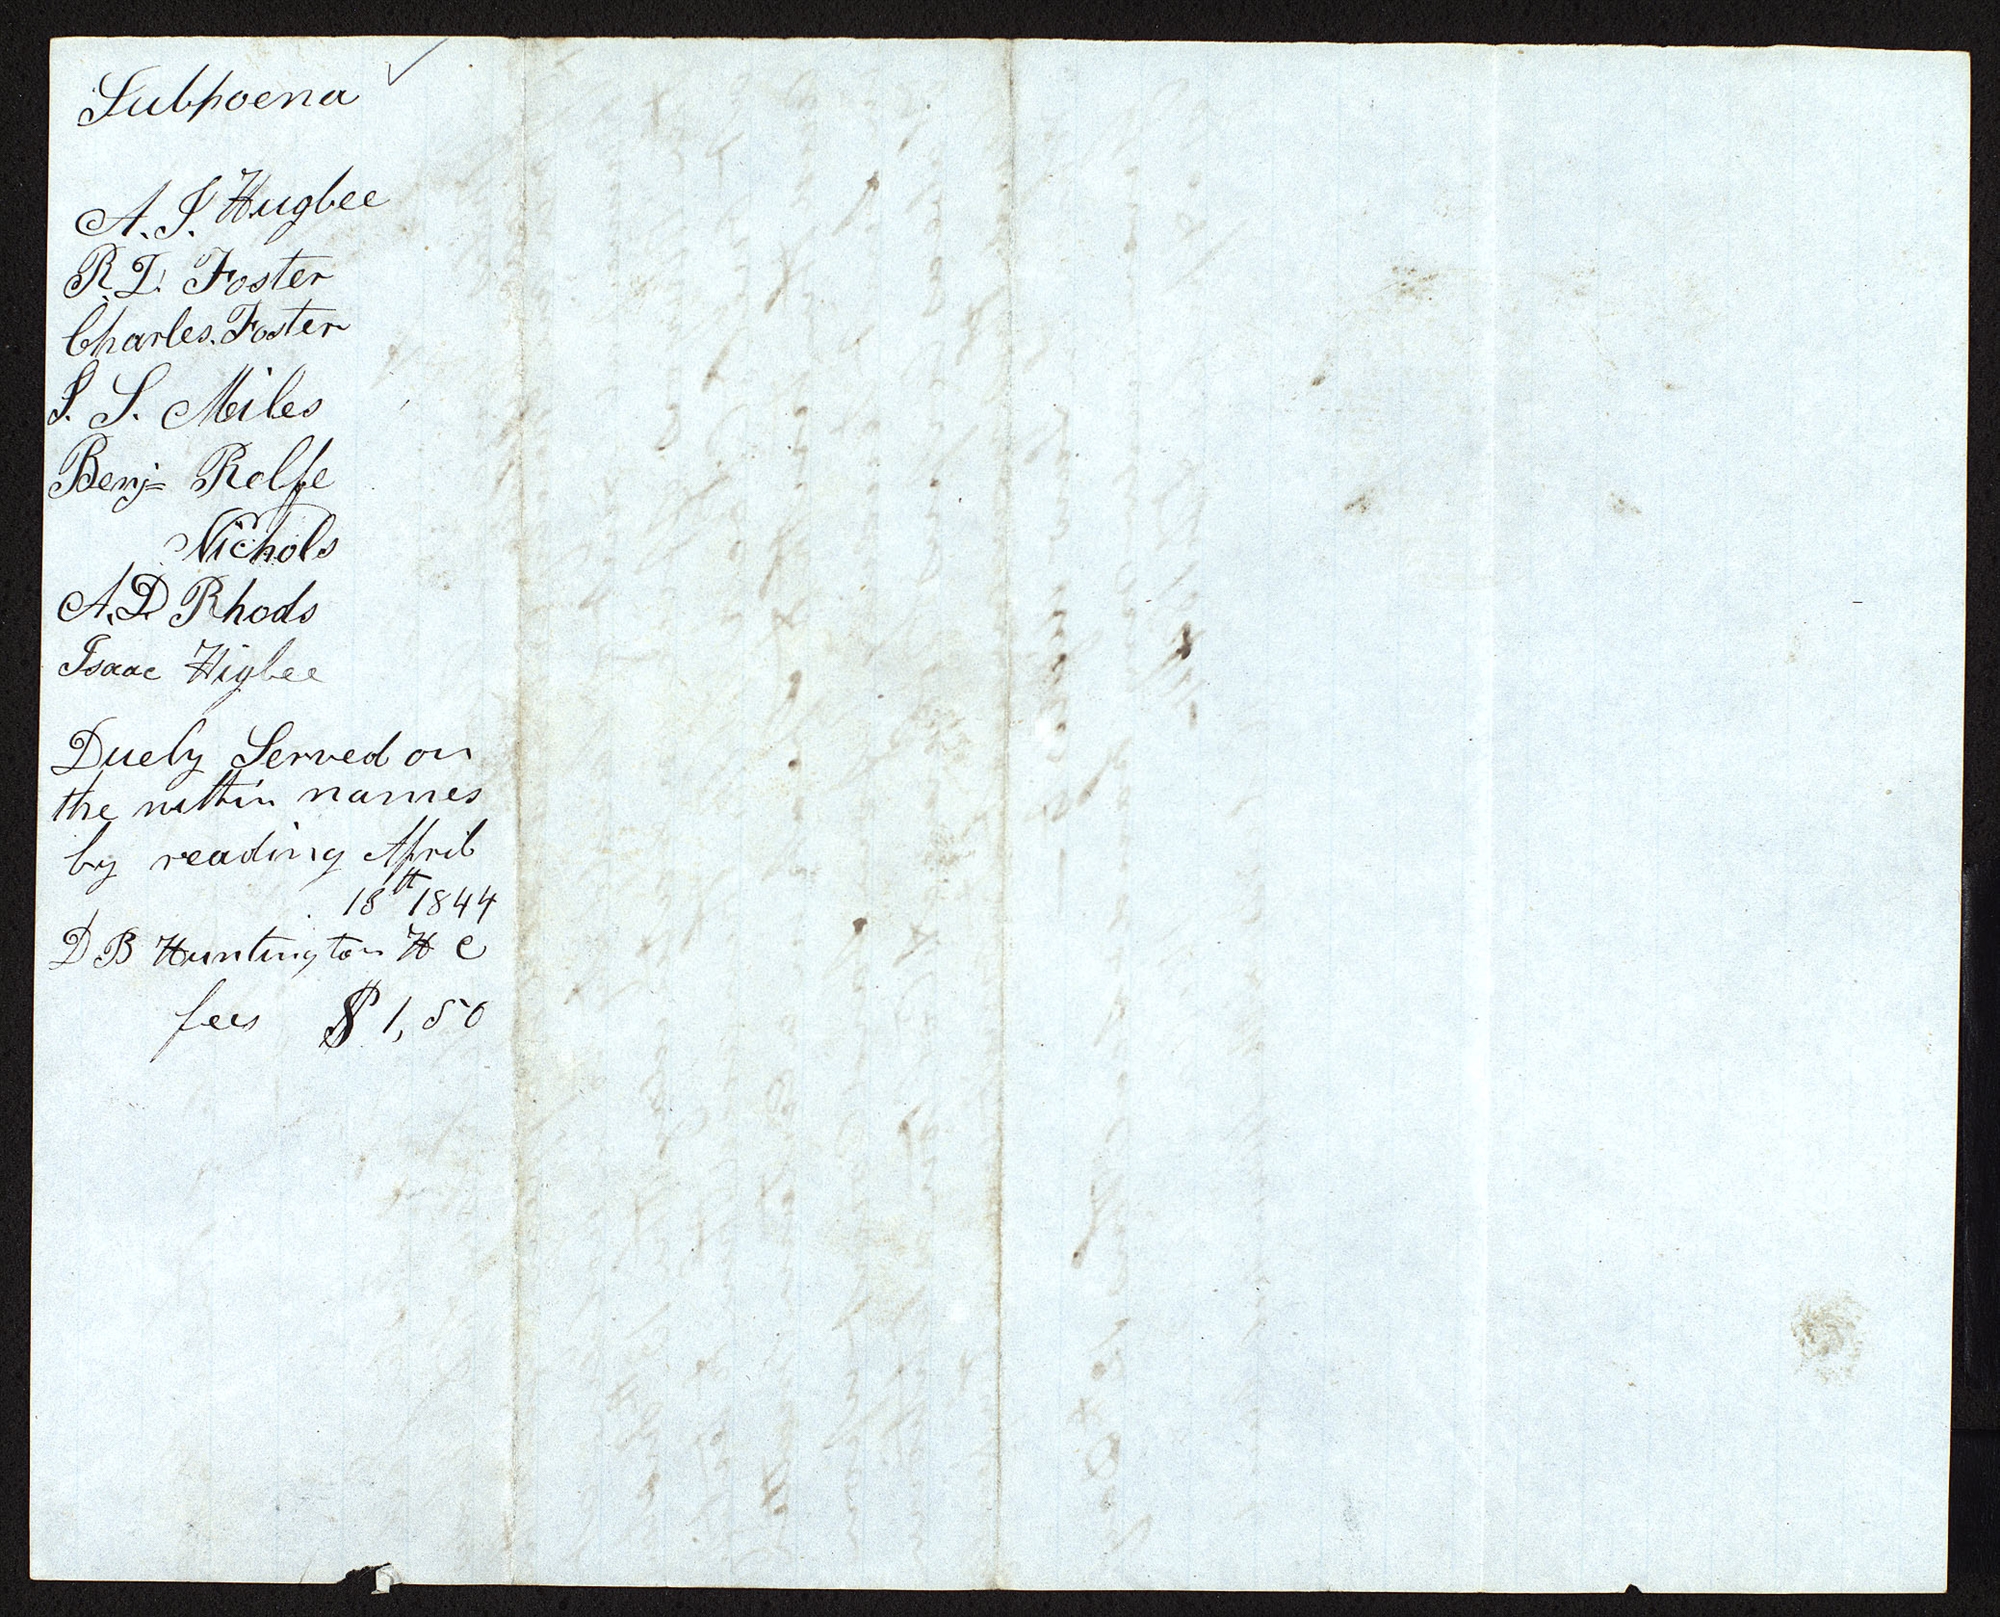 Subpoena
A. J. Hugbee
R. D. Foster
Charles. Foster
J. S. Miles
Benj= Rolfe
Nichols
A. D. Rhods
Isaac Higbee
Duely Served on
the within names
by reading April
18th 1844
D B Huntington H C
fees $1,50